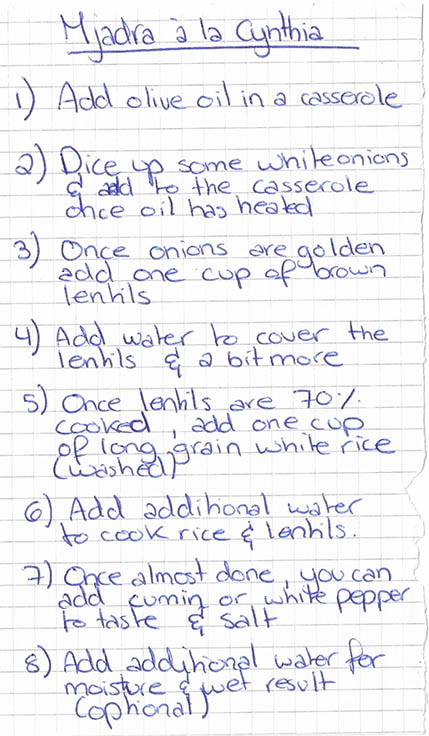 Mjadra à la Cynthia
1) Add olive oil in a casserole
2) Dice up some white onions
& add to the casserole
once oil has heated
3) Once onions are golden
add one cup of brown
lentils
4) Add water to cover the
lentils & a bit more
5) Once lentils are 70%
cooked, add one cup
of long grain white rice
(washed)
6) Add additional water
to cook rice & lentils.
7) Once almost done, you can
add cumin or white pepper
to taste & salt
8) Add additional water for
moisture & wet result
(optional)